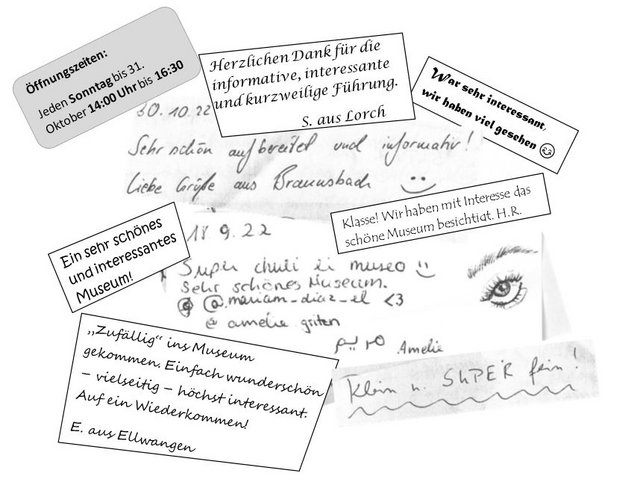 Öffnungszeiten:
Jeden Sonntag bis 31.
Oktober 14:00 Uhr bis 16:30
Herzlichen Dank für die
informative, interessante
und kurzweilige Führung.
S. aus Lorch
War sehr interessant,
wir haben viel gesehen ☺
30.10.22
Sehr schön aufbereitet und informativ!
Liebe Grüße aus Braunsbach
Klasse! Wir haben mit Interesse das
schöne Museum besichtigt. H.R.
Ein sehr schönes
und interessantes
Museum!
18 9.22
Super chuli el museo
Sehr schönes Museum.
@mariam_diaz_el <3
@ amelie
مريم Amelie
Klein u. SUPER fein!
„Zufällig“ ins Museum
gekommen. Einfach wunderschön
– vielseitig – höchst interessant.
Auf ein Wiederkommen!
E. aus Ellwangen